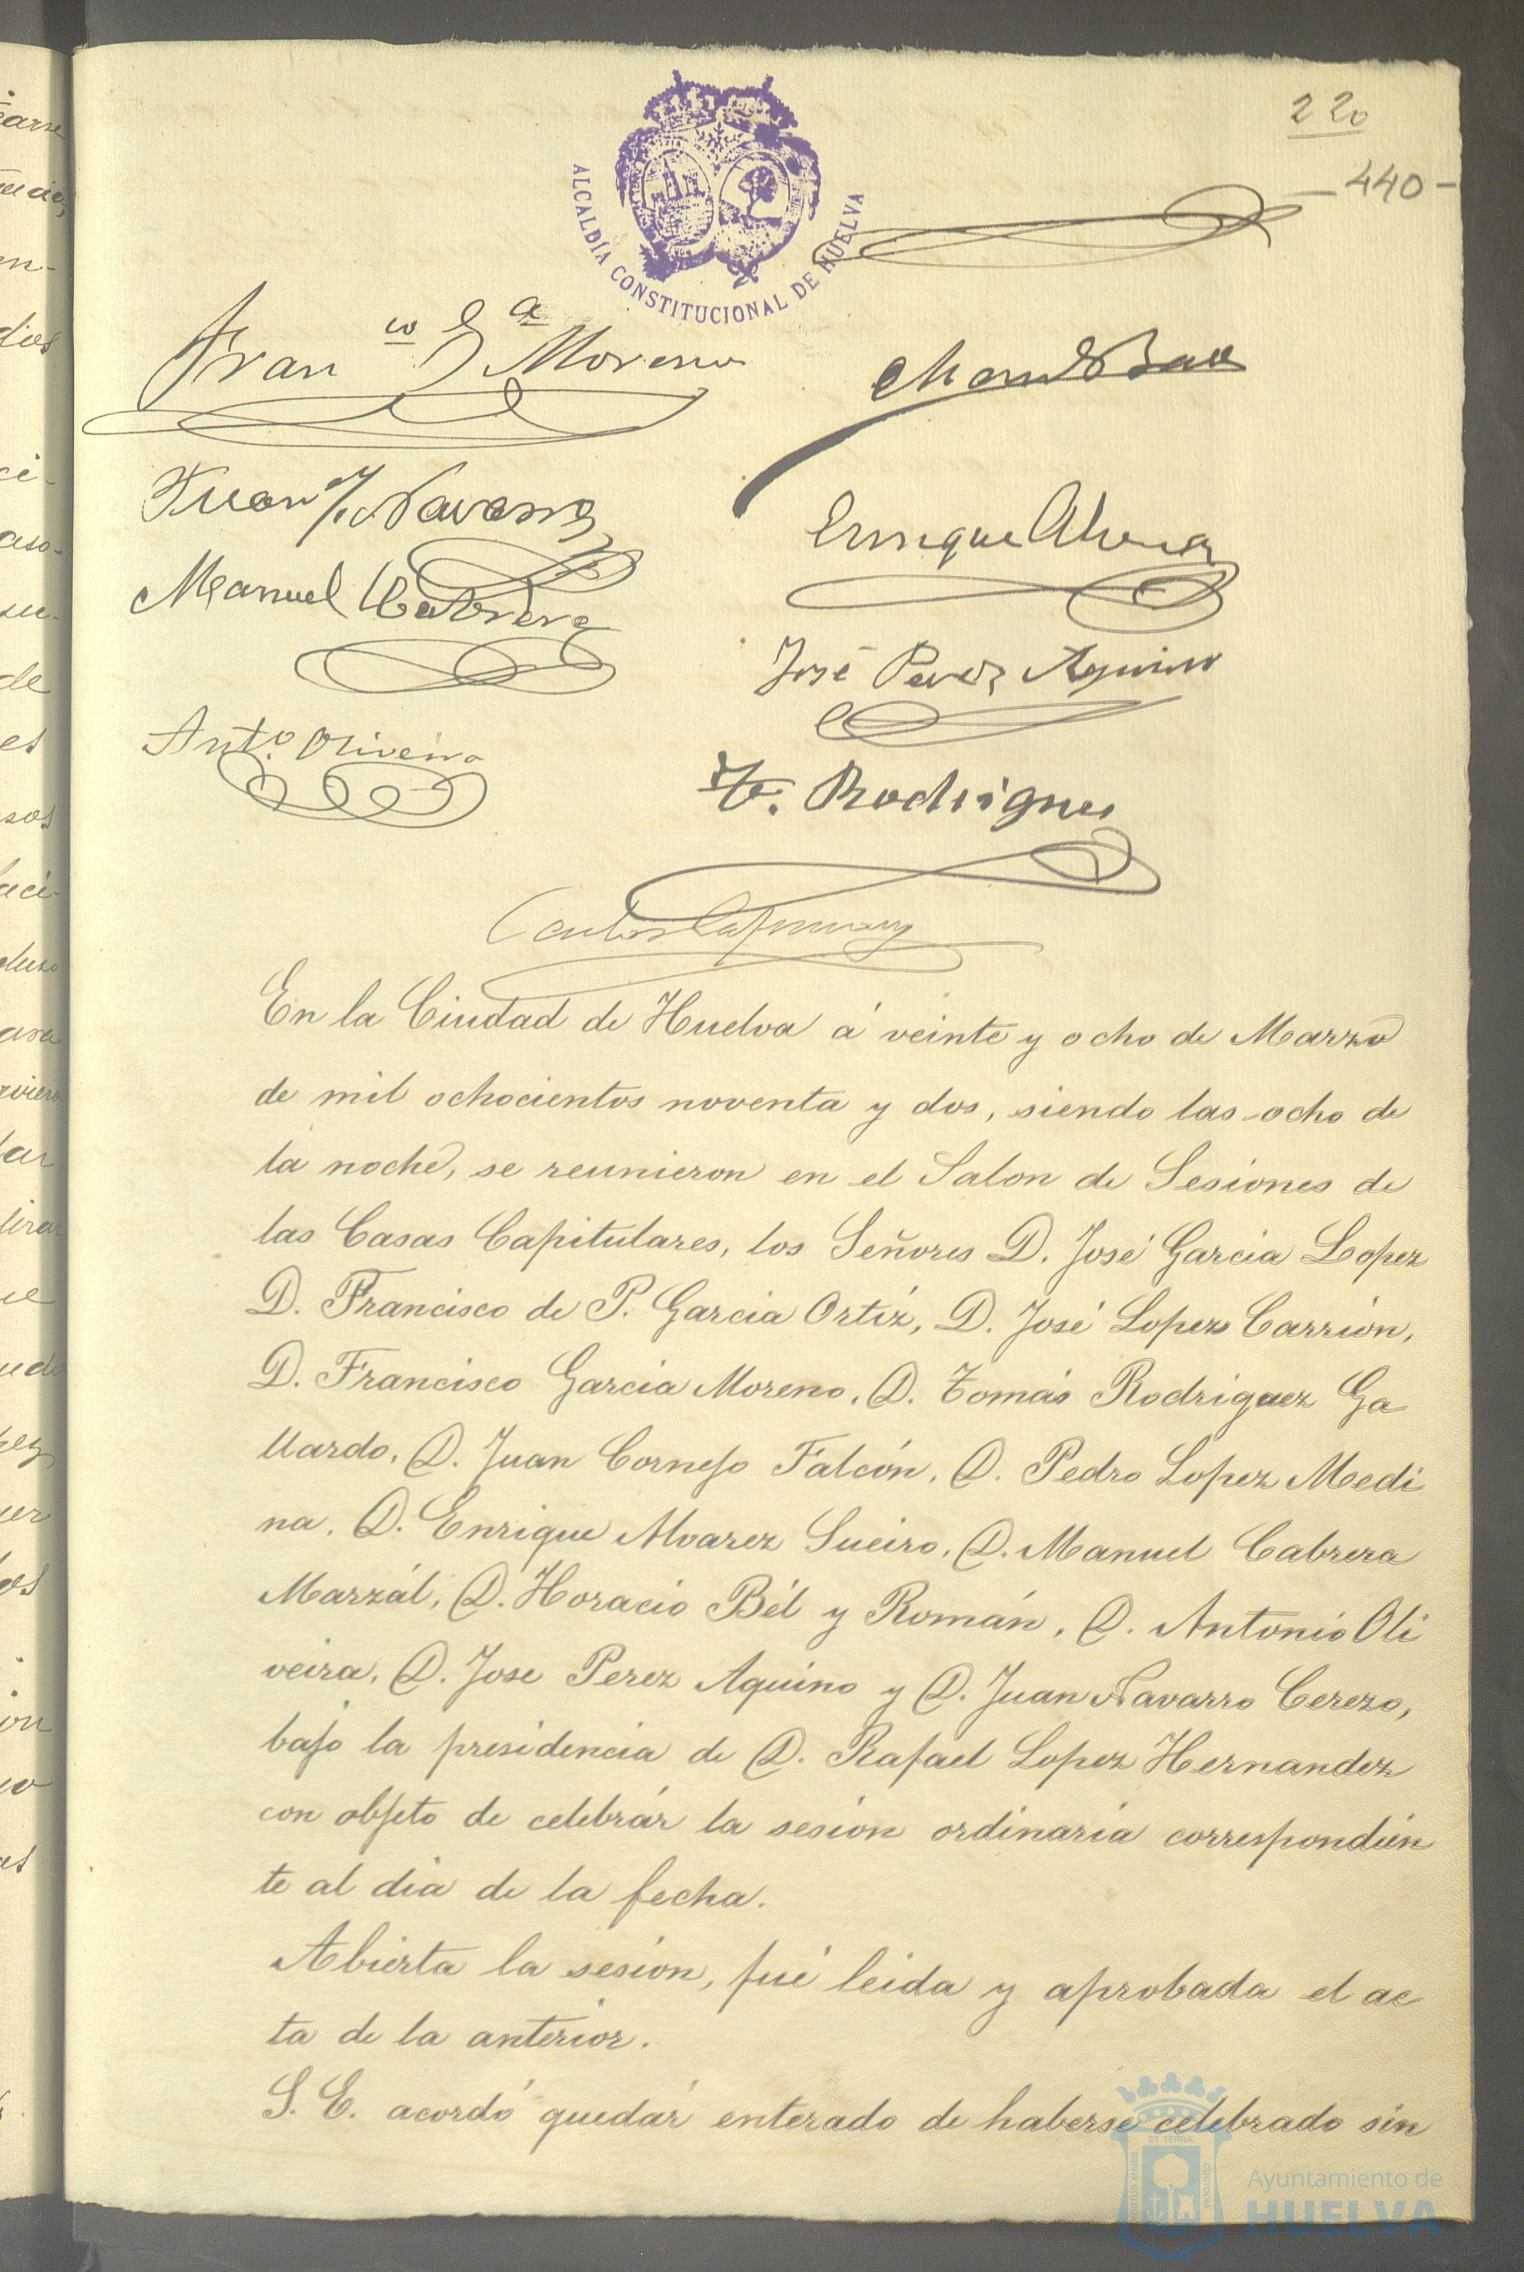 220
-440-
ALCALDÍA CONSTITUCIONAL DE HUELVA
Fran.co G.a Moreno
Juan J. Navarro
Enrique Alvarez
Manuel Cabrera
José Perez Aquino
Ant.o Oliveira
T. Rodriguez
En la Ciudad de Huelva á veinte y ocho de Marzo
de mil ochocientos noventa y dos, siendo las ocho de
la noche, se reunieron en el Salon de Sesiones de
las Casas Capitulares, los Señores D. José Garcia Lopez
D. Francisco de P. Garcia Ortiz, D. José Lopez Carrión,
D. Francisco Garcia Moreno, D. Tomás Rodriguez Ga
llardo, D. Juan Cornejo Falcón, D. Pedro Lopez Medi
na, D. Enrique Alvarez Sueiro, D. Manuel Cabrera
Marzál, D. Horacio Bél y Román, D. Antonio Oli
veira, D. Jose Perez Aquino y D. Juan Navarro Cerezo,
bajo la presidencia de D. Rafael Lopez Hernandez
con objeto de celebrár la sesion ordinaria correspondien
te al dia de la fecha.
Abierta la sesion, fué leida y aprobada el ac
ta de la anterior.
S. E. acordó quedár enterado de haberse celebrado sin
Ayuntamiento de
HUELVA